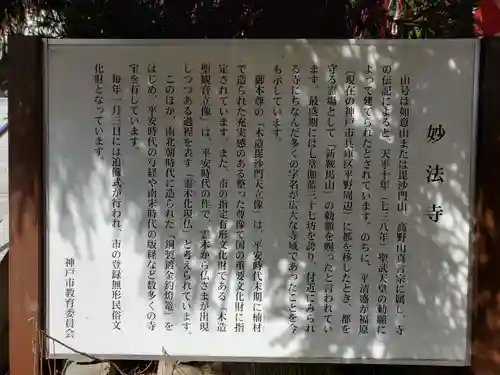 妙法寺
山号は如意山または毘沙門山、高野山真言宗に属し、寺
の伝記によると、天平十年(七三八年)聖武天皇の勅願に
よって建てられたとされています。のちに、平清盛が福原
(現在の神戸市兵庫区平野周辺)に都を移したとき、都を
守る霊場として「新鞍馬山」の勅願を賜ったと言われてい
ます。最盛期には七堂伽藍三十七坊を誇り、付近にみられ
る寺にちなんだ多くの字名が広大な寺域であったことを今
も示しています。
御本尊の「木造毘沙門天立像」は、平安時代末期に楠材
で造られた充実感のある整った尊像で国の重要文化財に指
定されています。また、市の指定有形文化財である「木造
聖観音立像」は、平安時代の作で、霊木から仏さまが出現
しつつある過程を表す「霊木化現仏」と考えられています。
このほか、南北朝時代に造られた「銅製鍍金釣燈籠」を
はじめ、平安時代の写経や南宋時代の版経など数多くの寺
宝を有しています。
毎年一月三日には追儺式が行われ、市の登録無形民俗文
化財となっています。
神戸市教育委員会